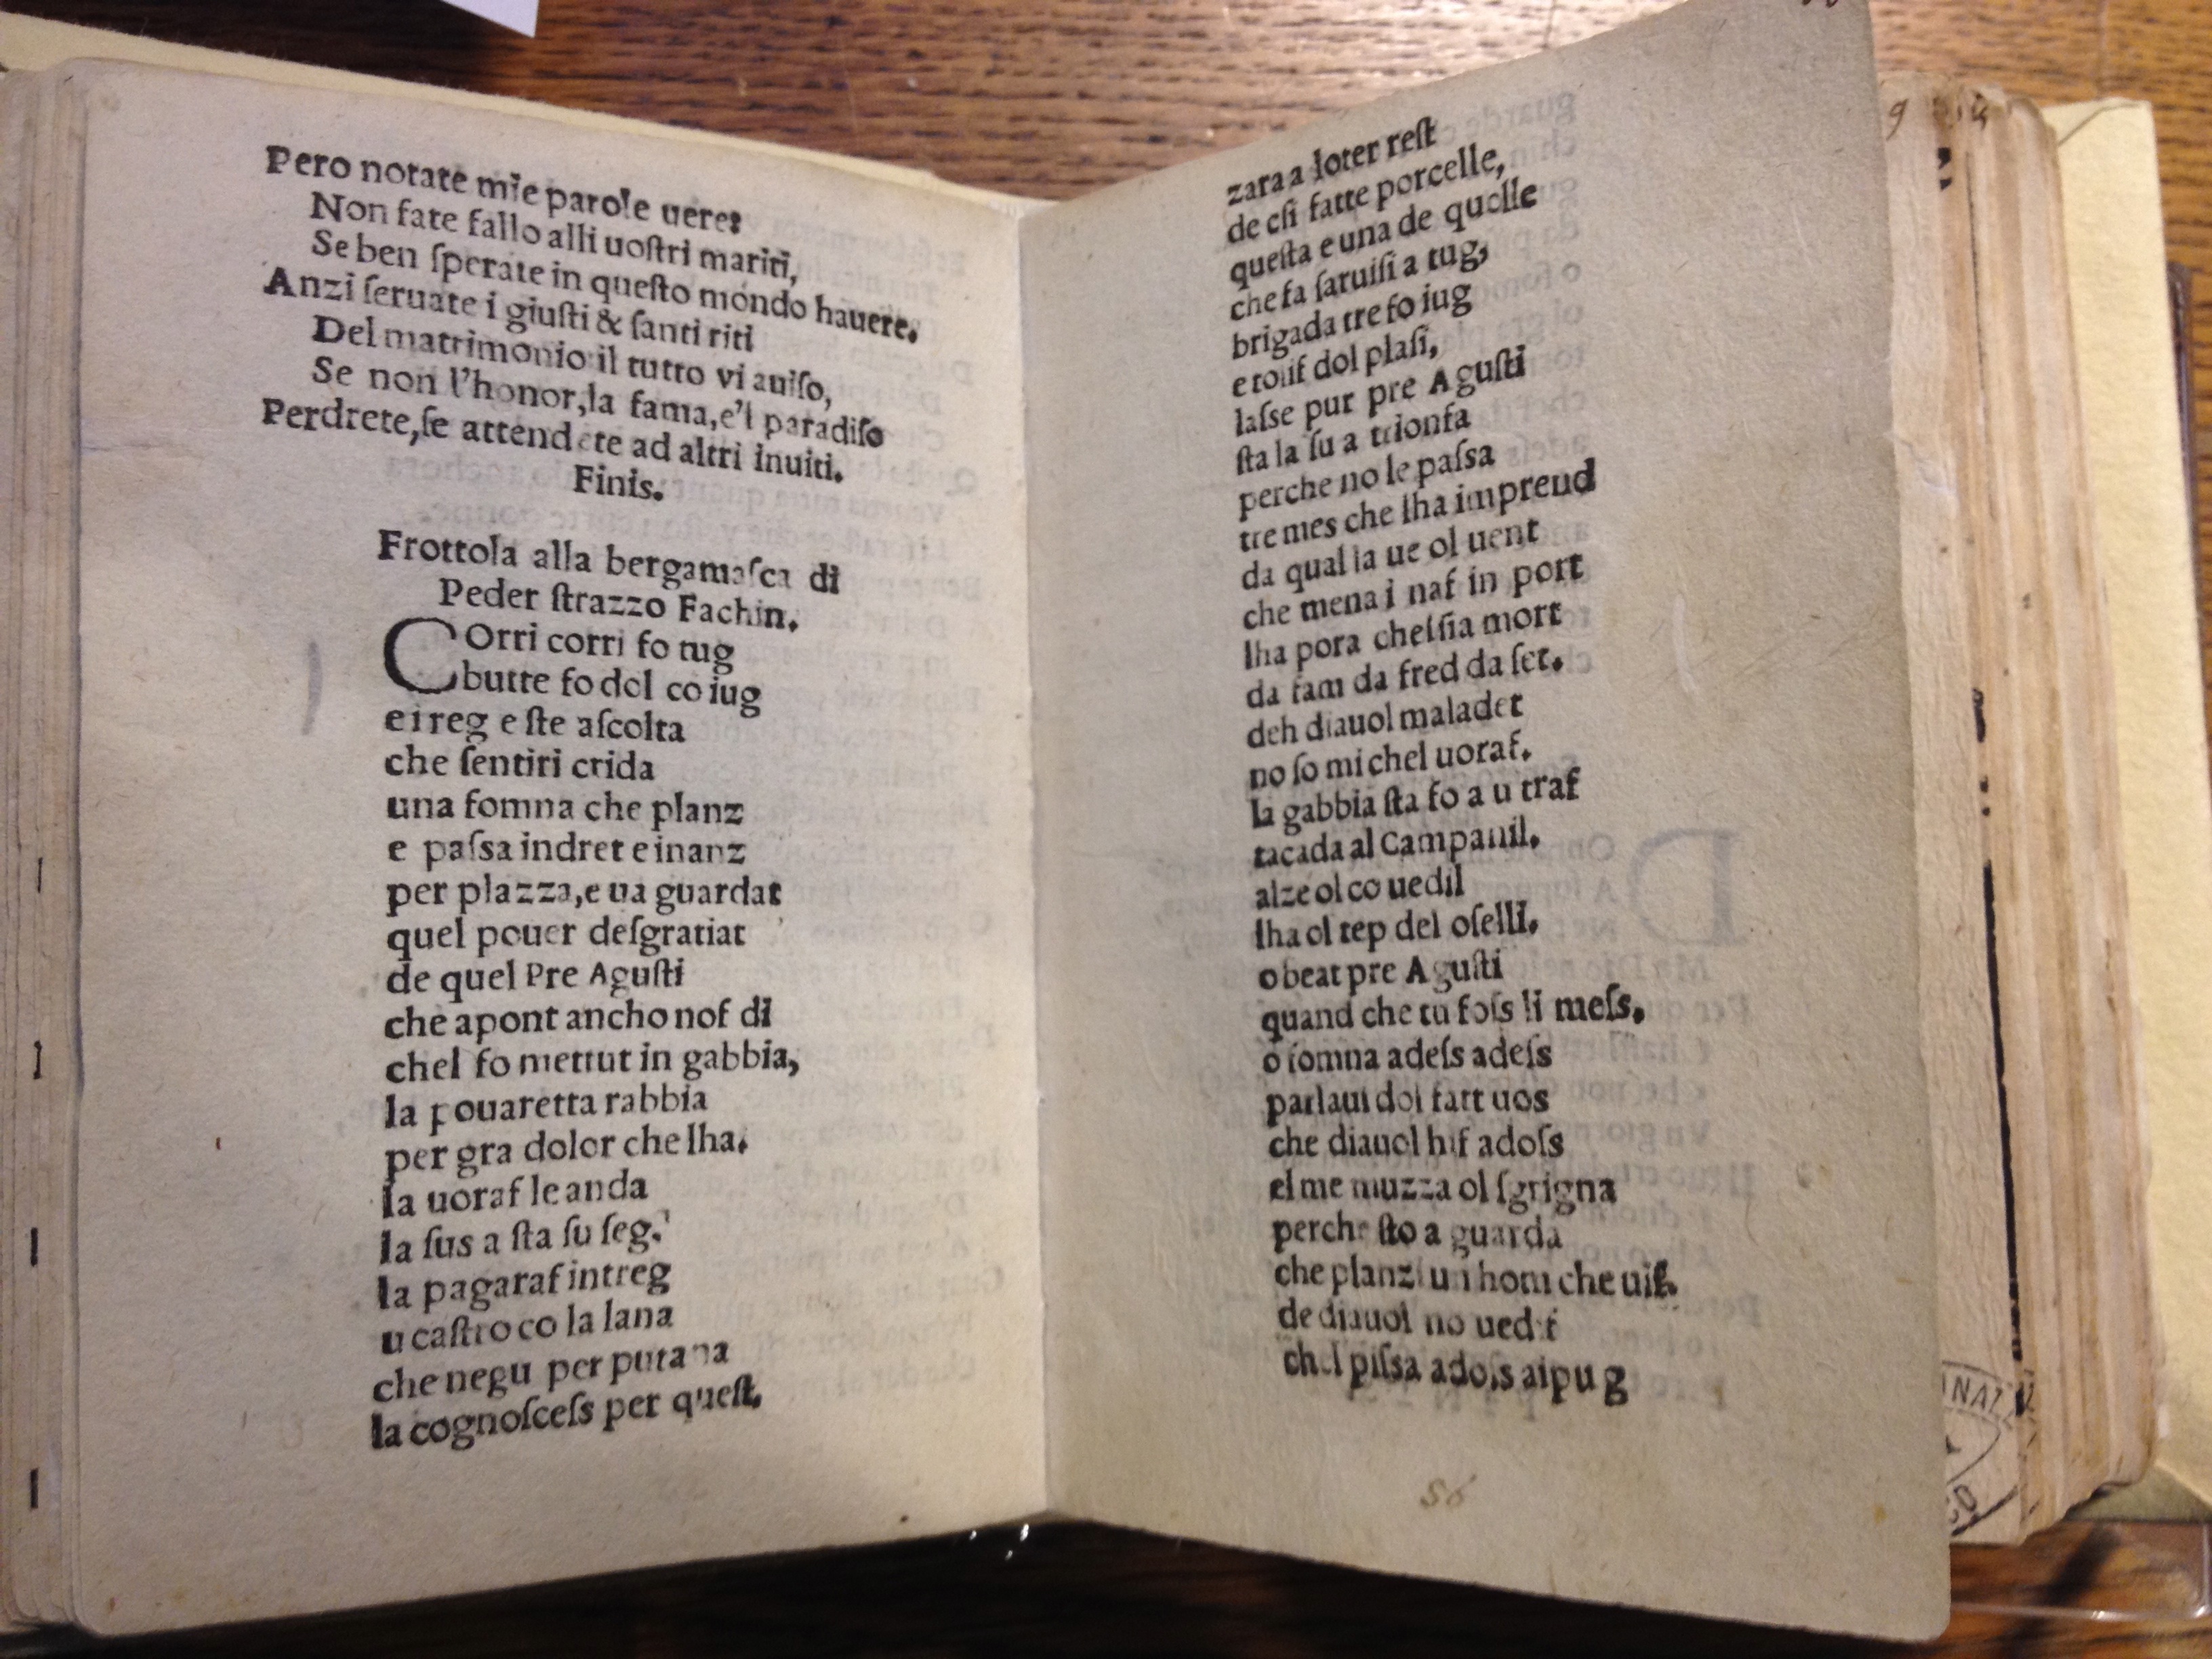 Pero notate mie parole uere:
Non fate fallo alli uoſtri mariti,
Se ben ſperate in queſto mondo hauere.
Anzi ſeruate i giuſti & ſanti riti
Del matrimonio il tutto vi auiſo,
Se non l'honor,la fama,e'l paradiſo
Perdrete,ſe attendete ad altri inuiti.
Finis.
Frottola alla bergamaſca di
Peder ſtrazzo Fachin.
COrri corri fo tug
butte fo dol co iug
e i reg e ſte aſcolta
che ſentiri crida
una fomna che planz
e paſsa indret e inanz
per plazza,e ua guardat
quel pouer deſgratiat
de quel Pre Aguſti
che apont ancho nof di
chel fo mettut in gabbia,
la pouaretta rabbia
per gra dolor che lha.
la uoraf le anda
la ſus a ſta ſu ſeg.
la pagaraf intreg
u caſtro co la lana
che negu per putana
la cognoſceſs per queſt.
zara a loter reſt
de eſi fatte porcelle,
queſta e una de quelle
che fa ſaruiſi a tug,
brigada tre fo iug
e tolif dol plaſi,
laſse pur pre Aguſti
ſta la ſu a trionfa
perche no le paſsa
tre mes che lha impreud
da qual la ue ol uent
che mena i naf in port
lha pora chelſia mort
da fam da fred da ſet.
deh diauol maladet
no ſo mi chel uoraf.
la gabbia ſta fo a u traf
tacada al Campanil.
alze ol co uedil
lha ol tep del oſelli.
o beat pre Aguſti
quand che tu foſs li meſs.
o fomna adeſs adeſs
parlaui dol fatt uos
che diauol hif adoſs
el me muzza ol ſgrigna
perche ſto a guarda
che planzi un hom che uif.
de diauol no uedif
chel piſsa adoſs aipug
56